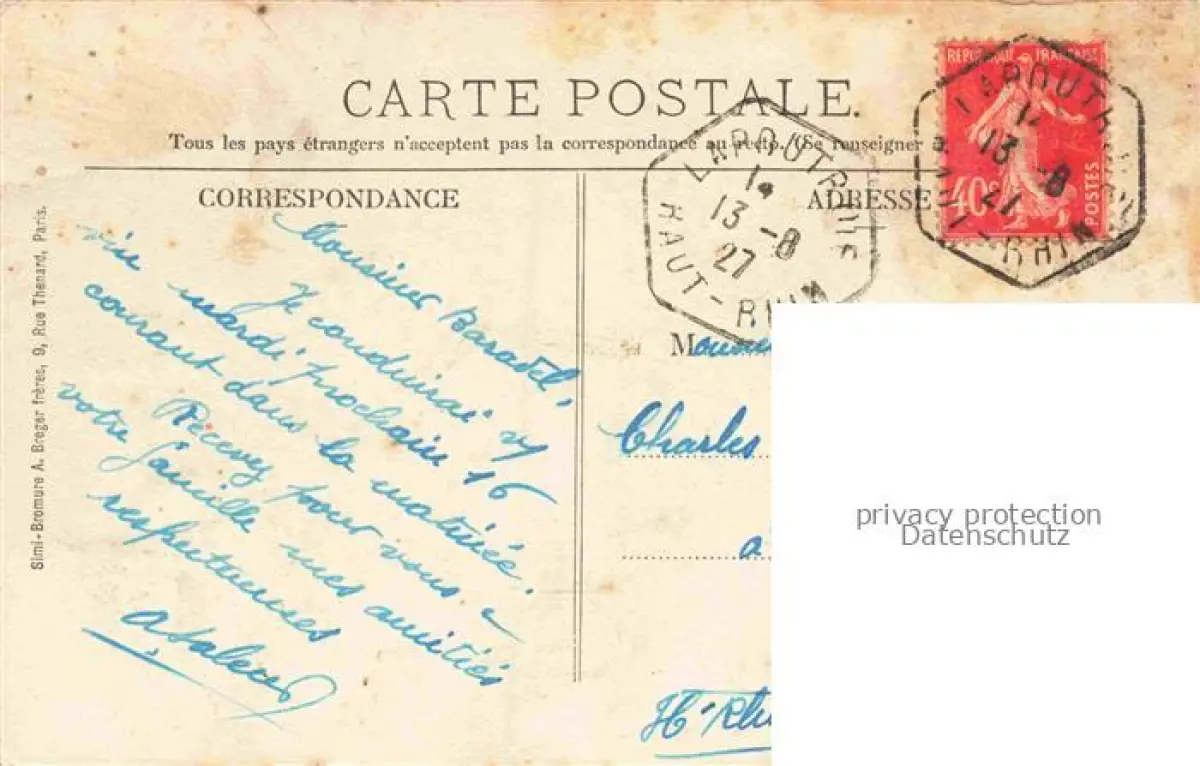 RÉPUBLIQUE FRANÇAISE
40c
POSTES
CARTE POSTALE.
Tous les pays étrangers n'acceptent pas la correspondance au recto. (Se renseigner à
CORRESPONDANCE
ADRESSE
LAPOUTROIE
14
13-8
27
HAUT-RHIN
LAPOUTR
13 -8
27
RHIN
Simi-Bromure A. Breger frères, 9, Rue Thenard, Paris.
Monsieur Baradel,
Je conduirai
vin mardi prochain 16
courant dans la matinée.
Recevez pour vous &
votre famille mes amitiés
respectueuses
M
Charles
a
Ht-Rhi
privacy protection
Datenschutz